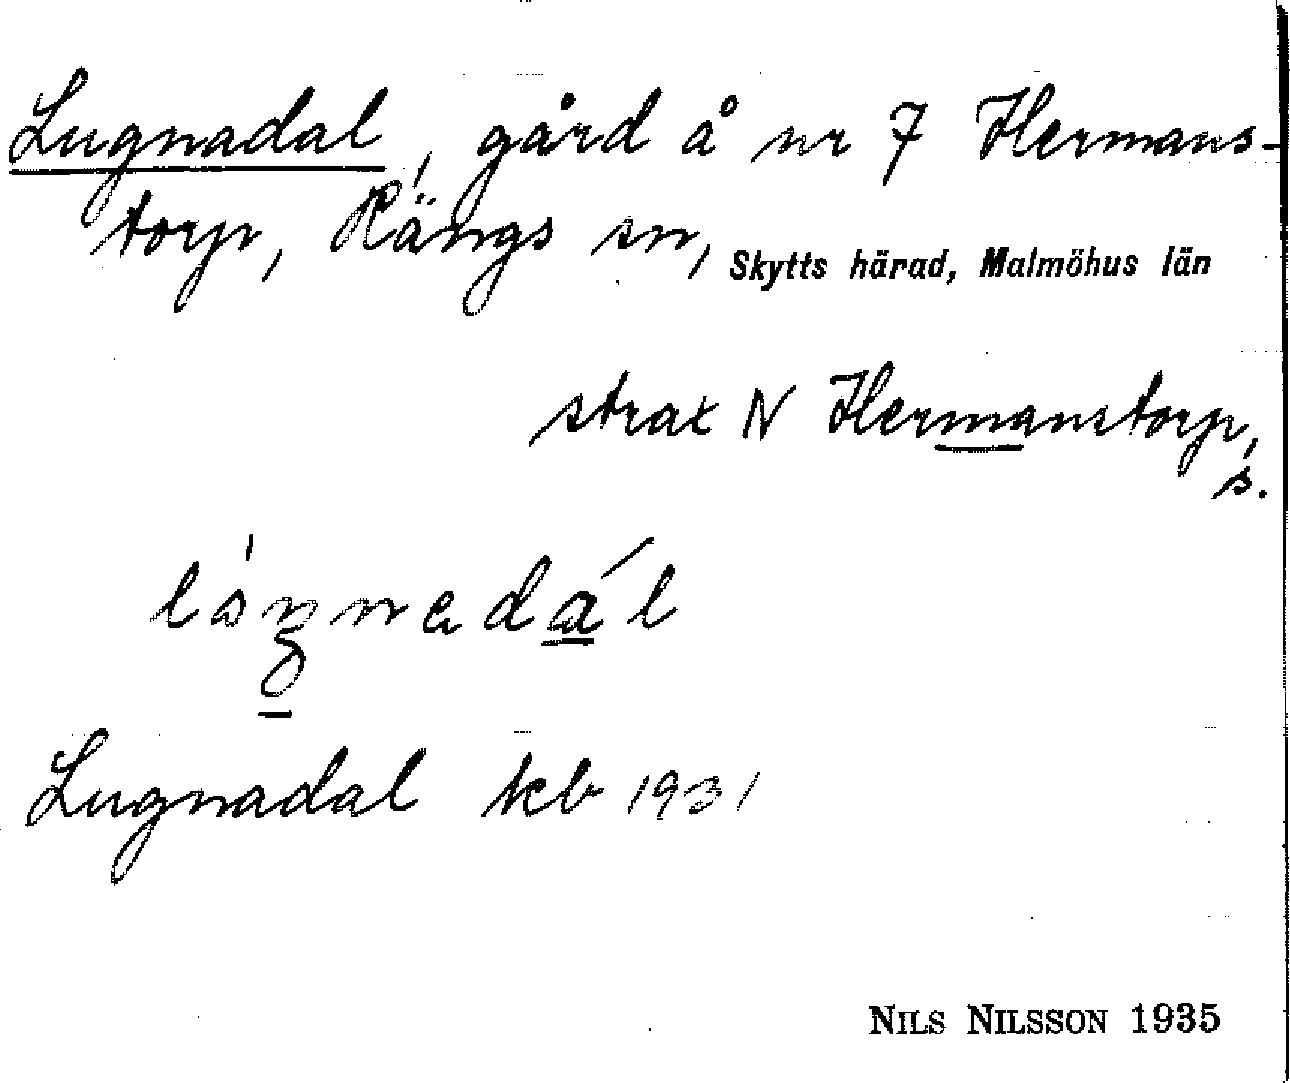 Lugnadal, gård å nr 7 Hermans-
torp, Rängs sn, Skytts härad, Malmöhus län
strax N Hermanstorp,
s.
Lugnadal kb 1931
NILS NILSSON 1935